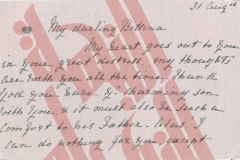 31 Aug
My darling Bettina
My heart goes out to you
in your great distress, my thoughts
are with you all the time, thank
God you have & charming son
with you & it must also be such a
comfort to his Father. Alas I
can do nothing for you, except